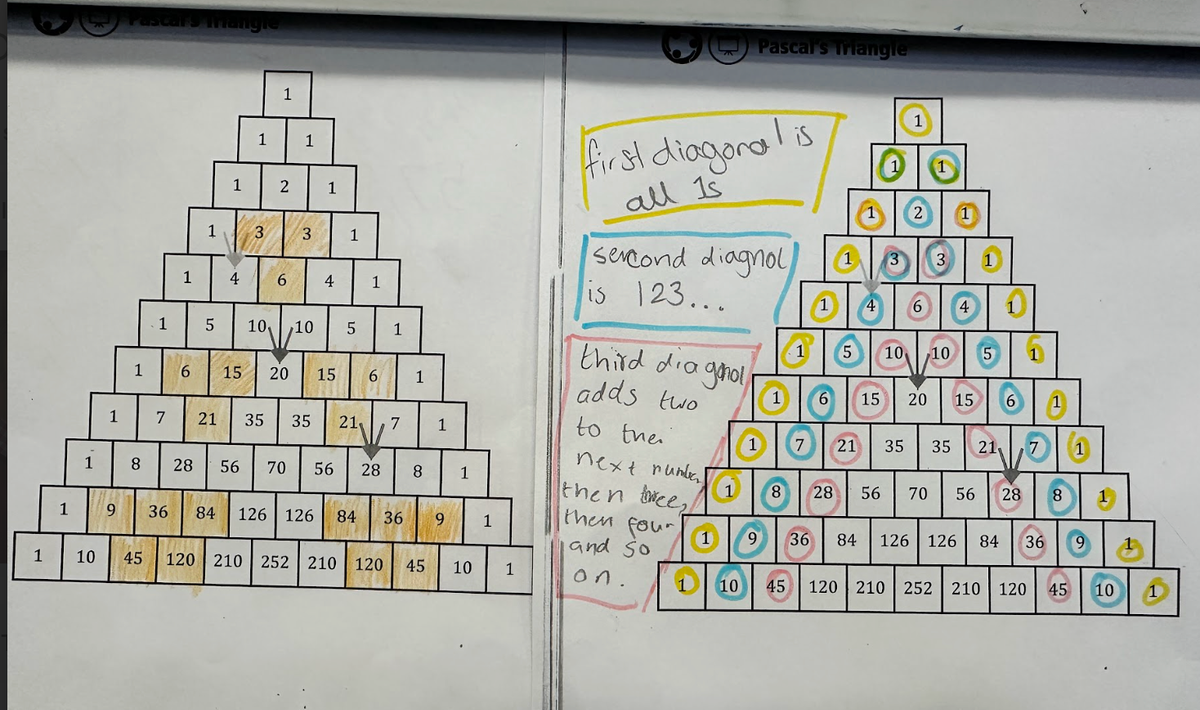 Pascal's Triangle
1
1 1
1 2 1
1 3 3 1
1 4 6 4 1
1 5 10 10 5 1
1 6 15 20 15 6 1
1 7 21 35 35 21 7 1
1 8 28 56 70 56 28 8 1
1 9 36 84 126 126 84 36 9 1
1 10 45 120 210 252 210 120 45 10 1
Pascal's Triangle
first diagonal is
all 1s
sercond diagnol
is 123...
third diagonol
adds two
to the
next number,
then three,
then four
and so
on.
1
1 1
1 2 1
1 3 3 1
1 4 6 4 1
1 5 10 10 5 1
1 6 15 20 15 6 1
1 7 21 35 35 21 7 1
1 8 28 56 70 56 28 8 1
1 9 36 84 126 126 84 36 9 1
1 10 45 120 210 252 210 120 45 10 1